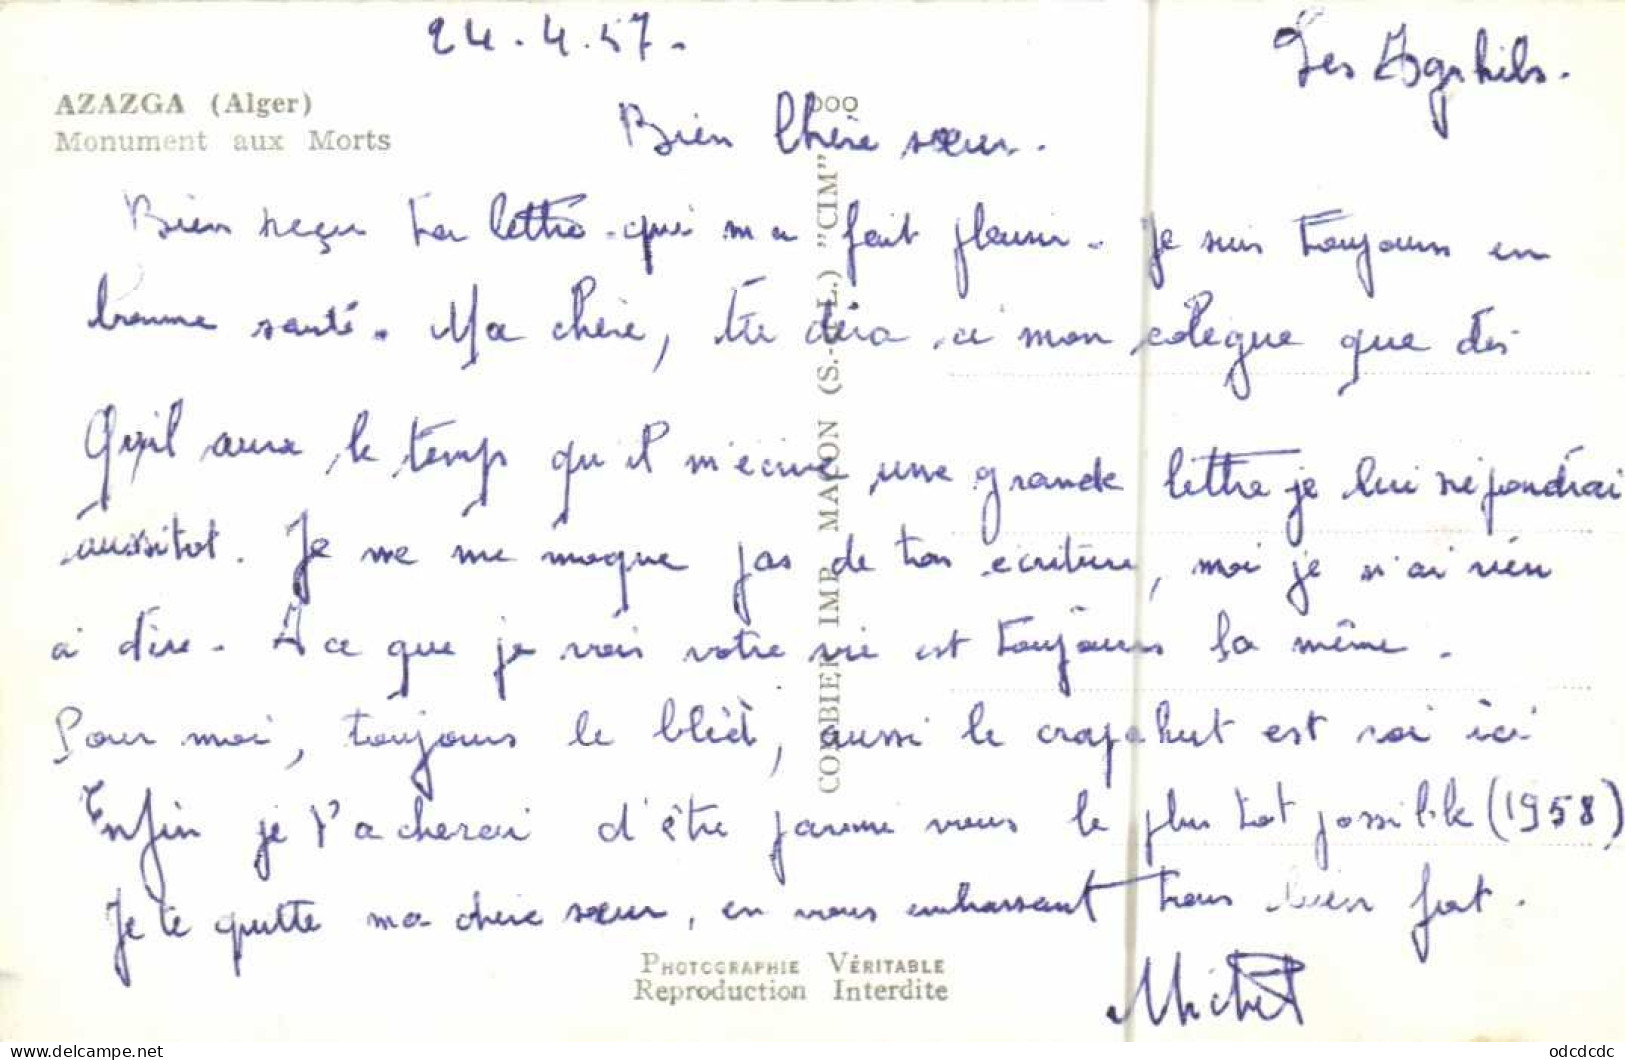 24.4.57.
Les Aghils.
AZAZGA (Alger)
Monument aux Morts
Bien Chère sœur.
Bien reçu ta lettre qui m'a fait plaisir. Je suis toujours en
bonne santé. Ma chère, tu dira a mon colègue que dès
Qu'il aura le temps qu'il m'écrive une grande lettre je lui répondrai
aussitot. Je ne me moque pas de ton écriture, moi je n'ai rien
a dire. A ce que je vois votre vie est toujours la même.
Pour moi, toujours le blèd, aussi le crapahut est roi ici
Enfin je t'acherai d'être parmi vous le plus tot possible (1958)
Je te quitte ma chère sœur, en vous embrassant tous bien fort.
Michel
COMBIER IMP. MACON (S.-&-L.) "CIM"
PHOTOGRAPHIE VÉRITABLE
Reproduction Interdite
odcdcdc